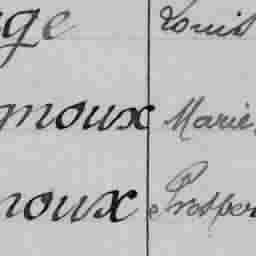 ge Louis
moux Marie
noux Prosper